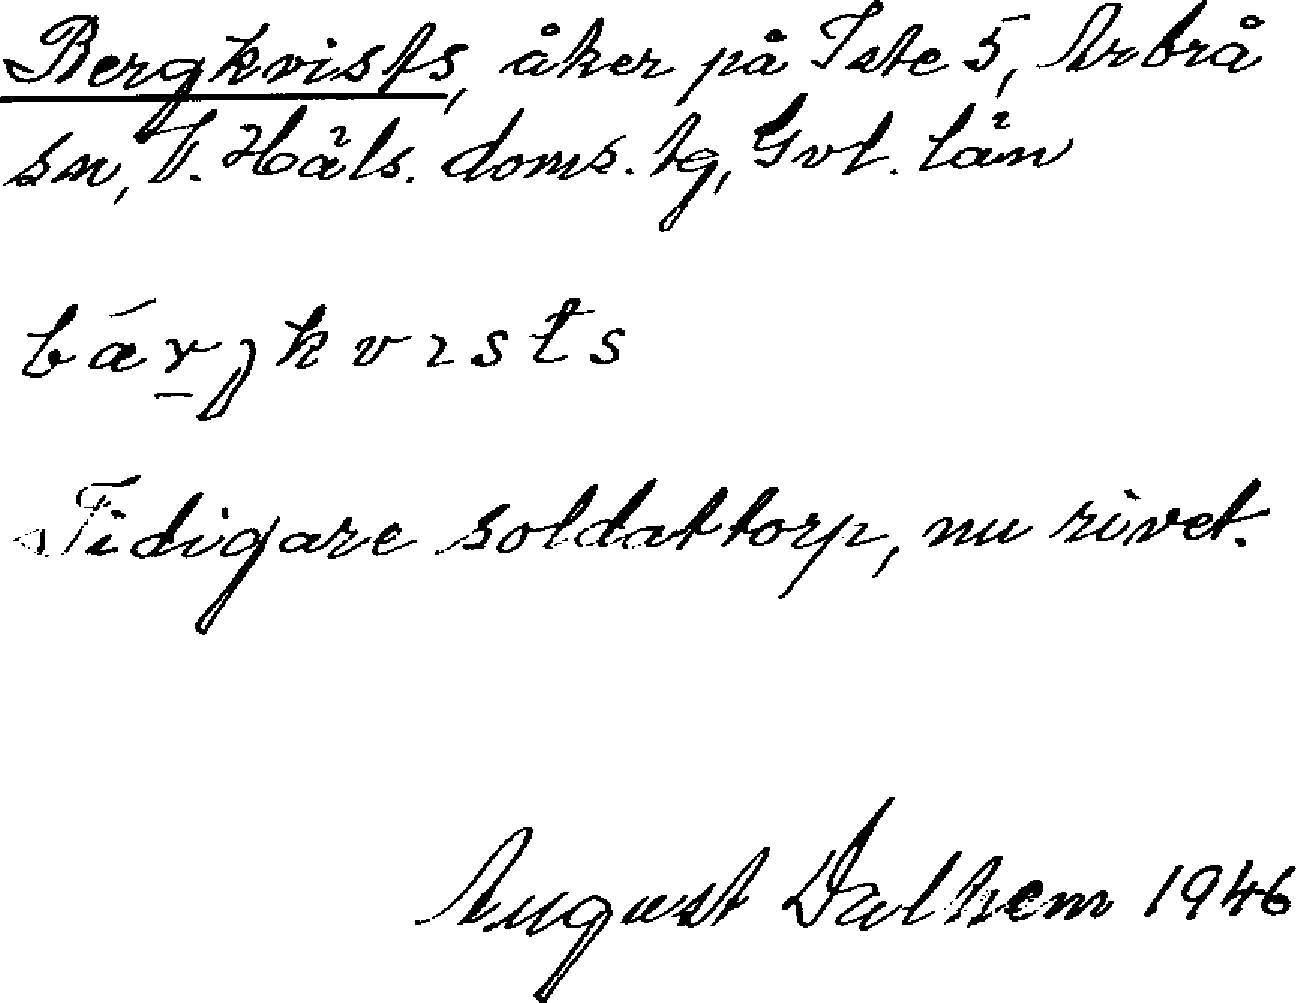 Bergkvists, åker på Iste 5, Arbrå
sn, V. Häls. doms. tg, Gvl. län
bǽr̲ʒkvısts
Tidigare soldattorp, nu rivet.
August Dalhem 1946